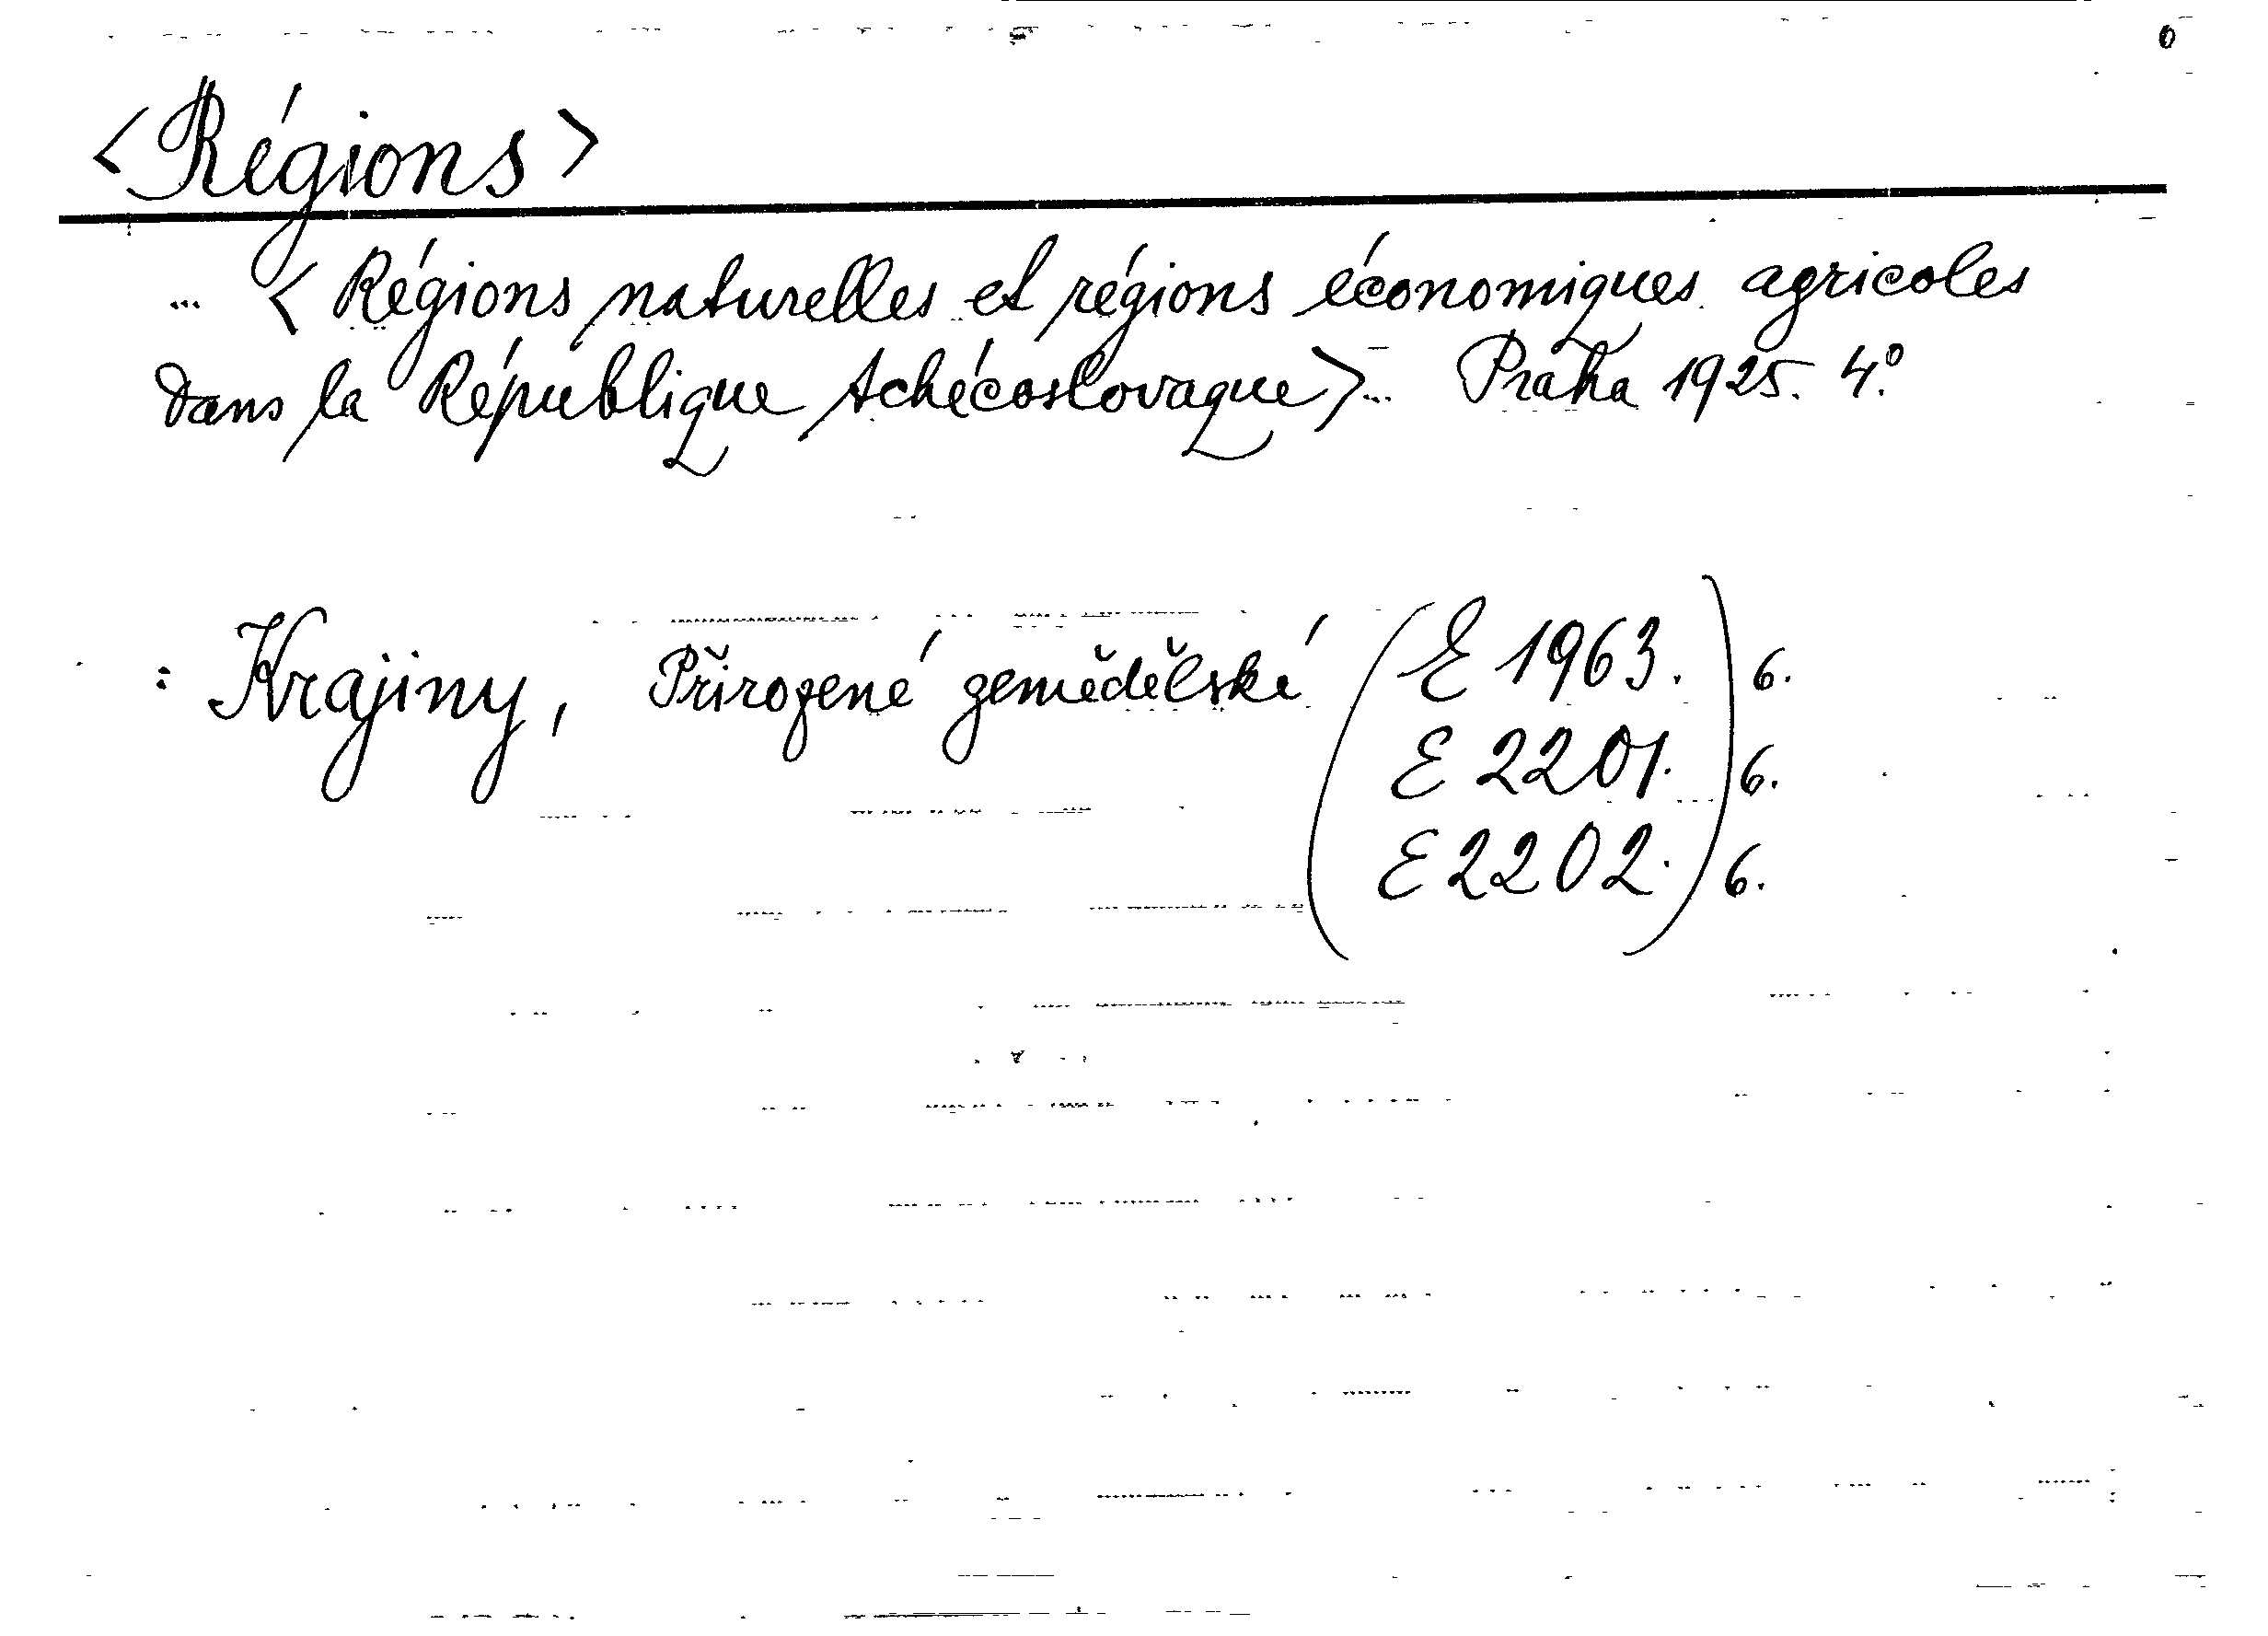 <Régions>
... <Régions naturelles et régions économiques agricoles
dans la République tchécoslovaque>... Praha 1925. 4°.
: Krajiny, Přirozené zemědělské (E 1963.) 6.
E 2201. 6.
E 2202. 6.